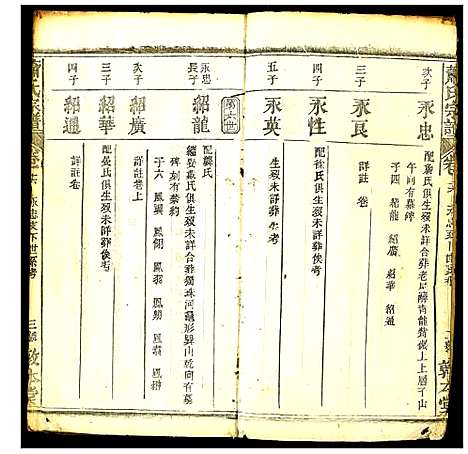 蕭氏宗譜
次子
永忠
配龔氏俱生歿未詳合葬老
午向有墓碑
子四 紹龍 紹廣 紹華 紹通
三子
永良
詳註 卷
四子
永性
配徐氏俱生歿未詳葬俟考
五子
永英
生歿未詳葬失考
第六世
永忠
長子
紹龍
配龔氏
繼娶戴氏俱生歿未詳合葬獨珠河龜形巽山乾向有墓
碑刻有禁約
子六 鳳翼 鳳翎 鳳翥 鳳翔
次子
紹廣
詳註卷上
三子
紹華
配吳氏俱生歿未詳葬俟考
四子
紹通
詳註卷
蕭氏宗譜
永忠支下世系考
敦本堂